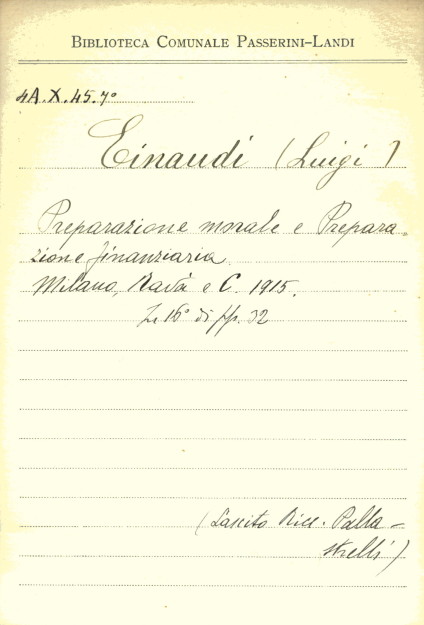 BIBLIOTECA COMUNALE PASSERINI-LANDI
4A.X.45.7°
Einaudi (Luigi)
Preparazione morale e Prepara-
zione finanziaria.
Milano, Ravà e C. 1915.
In 16° di pp. 32
(Lascito Ricc. Palla-
strelli)